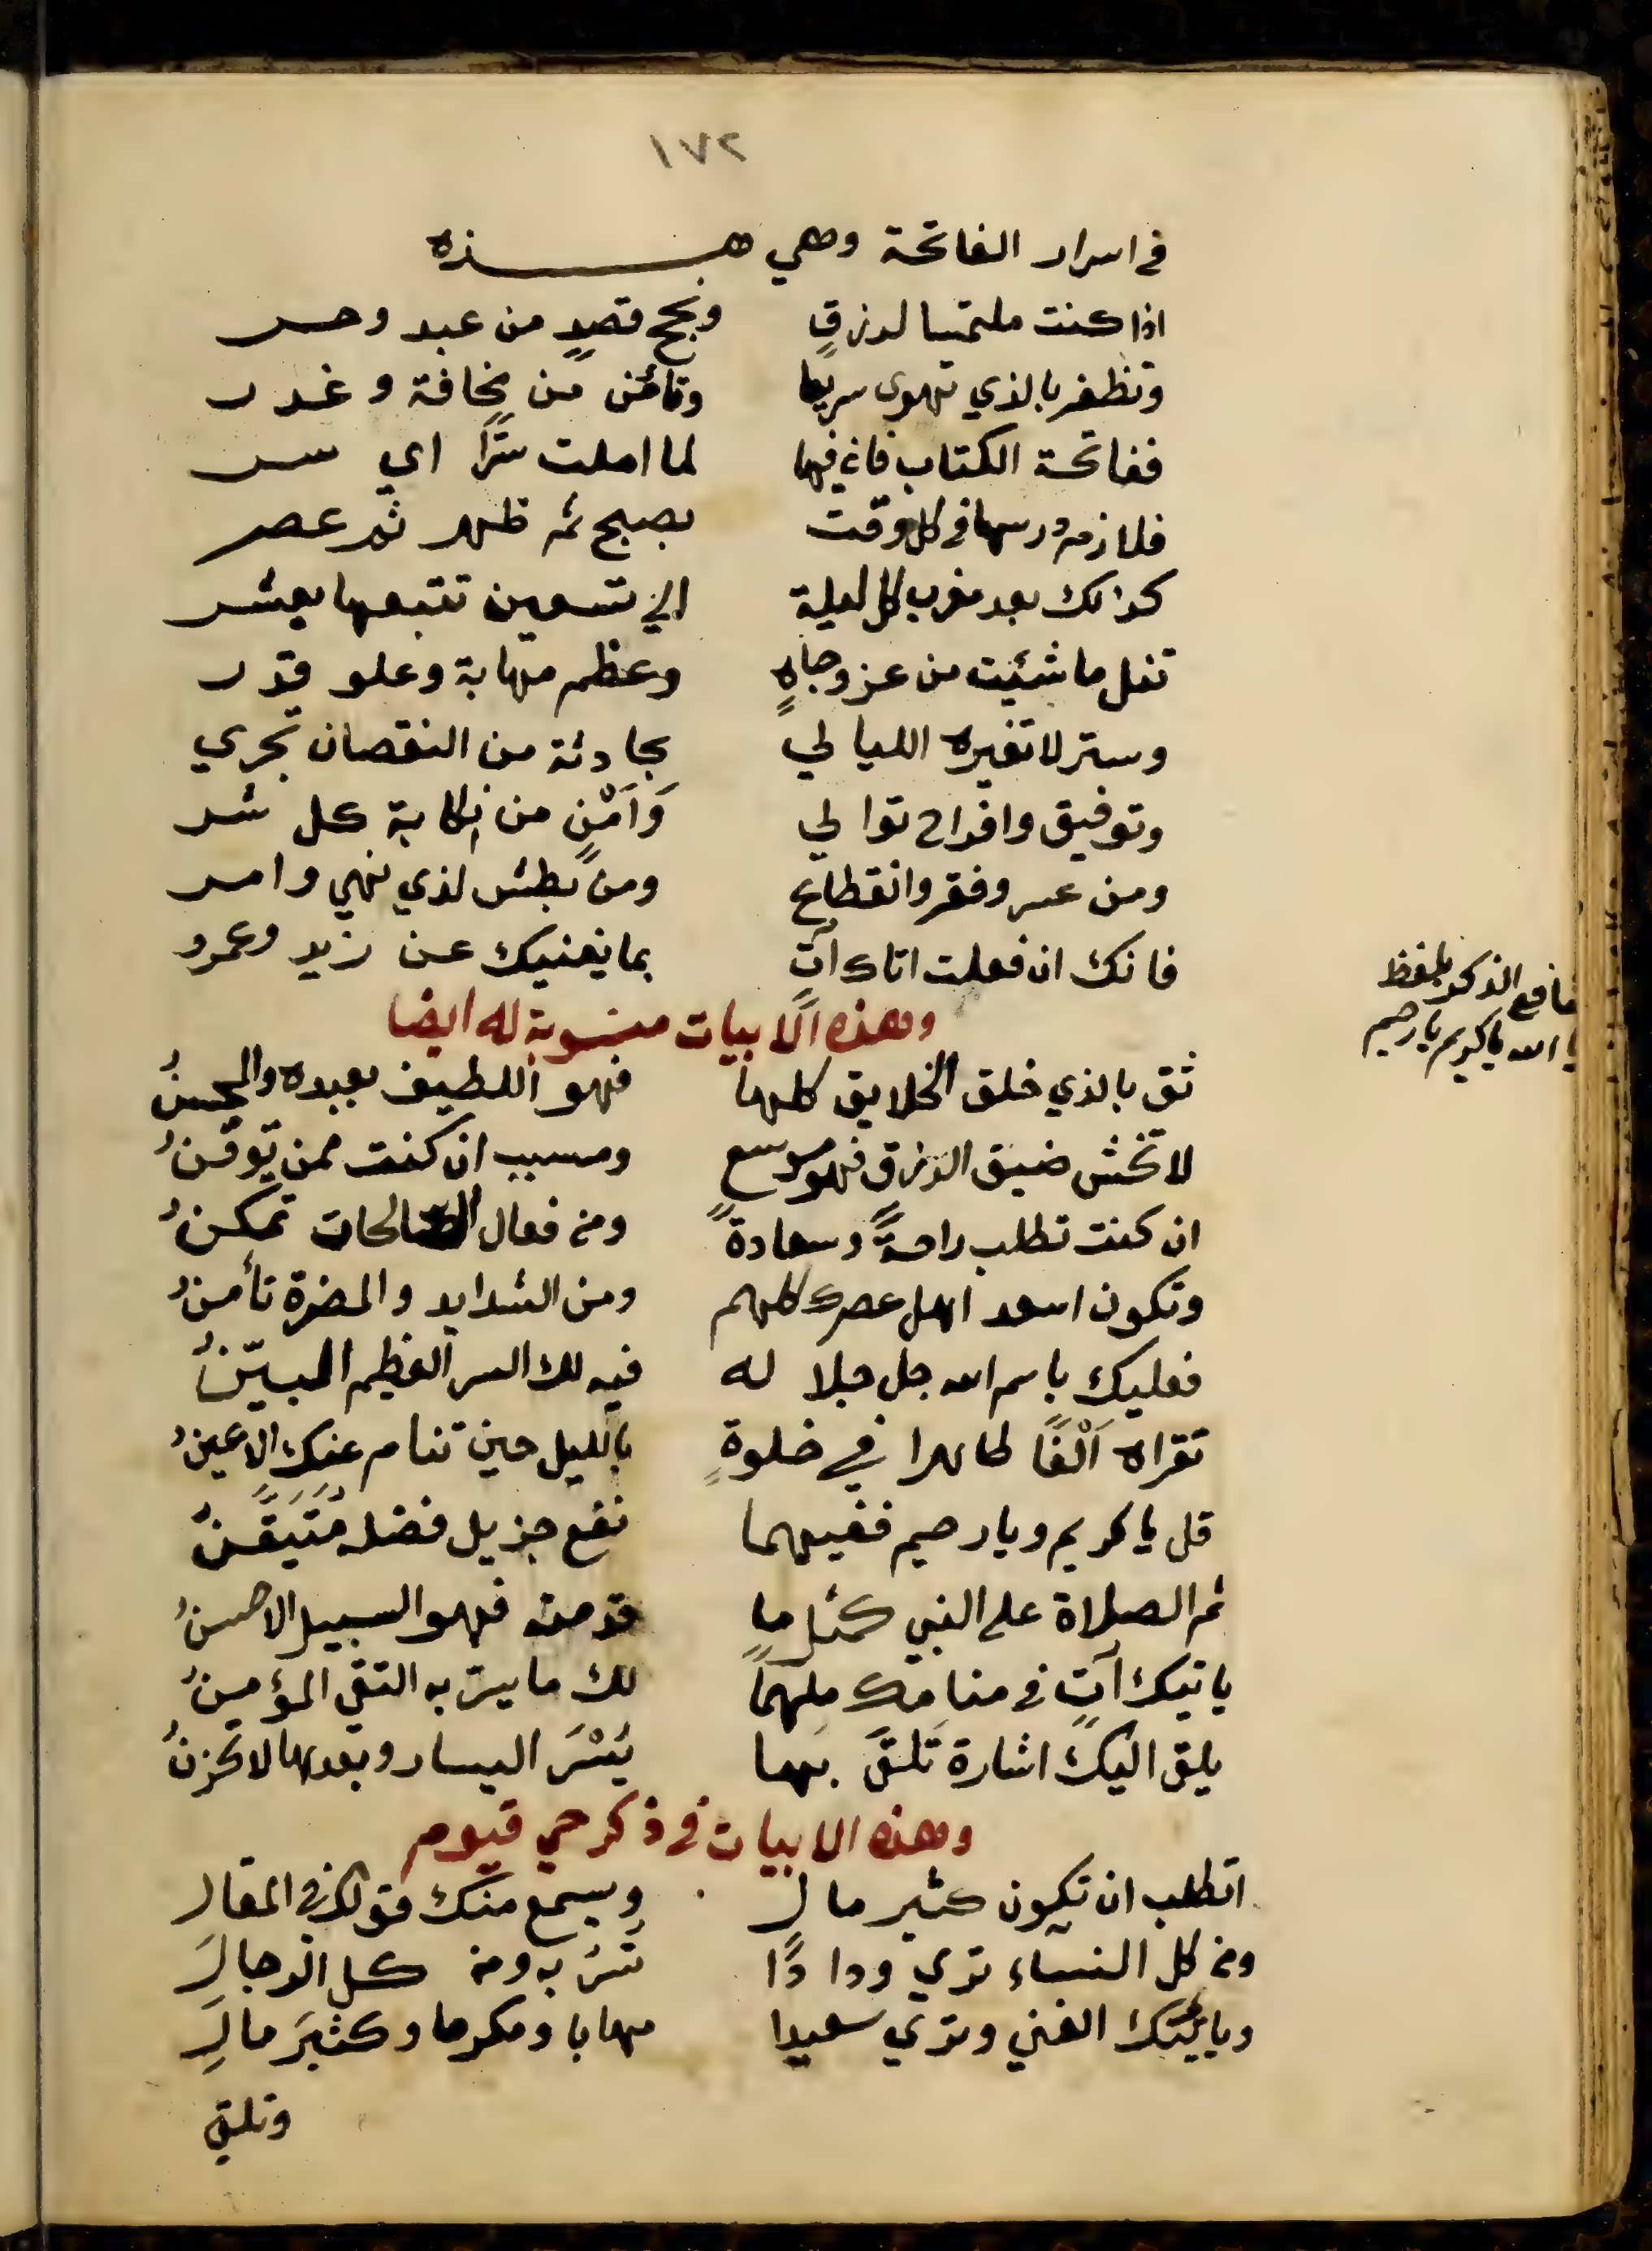 ١٧٢
في اسرار الفاتحة وهي هـــذه
اذا كنت ملتمسا لرزقٍ ونجح قصدٍ من عبد وحر
وتظفر بالذي تهوى سريعا وتأمن من مخافة وغدر
ففاتحة الكتاب فان فيها لما املت سرًّا اي سر
فلازم درسها في كل وقت بصبح ثم ظهر ثم عصر
كذلك بعد مغرب كل ليلة الى تسعين تتبعها بعشر
تنل ما شئت من عز وجاهٍ وعظم مهابة وعلو قدر
وستر لا تغيره الليالي بحادثة من النقصان تجري
وتوفيق وافراح توالي وَاَمْنٍ من نكاية كل شر
ومن عسر وفقر وانقطاع ومن بطش لذي نهي وامر
فانك ان فعلت اتاك آتٍ بما يغنيك عن زيد وعمرو
وهذه الابيات منسوبة له ايضا
ثق بالذي خلق الخلايق كلها فهو اللطيف بعبده والمحسنُ
لا تخش ضيق الرزق فهو موسع ومسبب ان كنت ممن يوقنُ
ان كنت تطلب راحةً وسعادةً ومن فعال الصالحات تمكنُ
وتكون اسعد اهل عصرك كلهم ومن الشدايد والمضرة تأمنُ
فعليك باسم الله جل جلاله فيه لك السر العظيم البيّنُ
تقراه اَلْفًا طاهرا في خلوةٍ بالليل حين تنام عنك الاعينُ
قل يا كريم ويا رحيم ففيهما نفع جزيل فضله مُتَيَقَّنٌ
ثم الصلاة على النبي كمثل ما قدمته فهو السبيل الاحسنُ
ياتيك آتٍ في منامك ملهمًا لك ما يسر به التقي المؤمنُ
يلق اليك اشارة تَلقَ بها يُسْرَ اليسار وبعدها لا تحزنُ
وهذه الابيات في ذكر حي قيوم
اتطلب ان تكون كثير مال ويسمع منك قولك في المقال
ومن كل النساء ترى ودادًا تسر به ومن كل الرجالِ
وياتيك الغنى وترى سعيدا مهابا ومكرما وكثيرَ مالِ
وتلق
منافع الذكر بلفظ
يا الله يا كريم يا رحيم